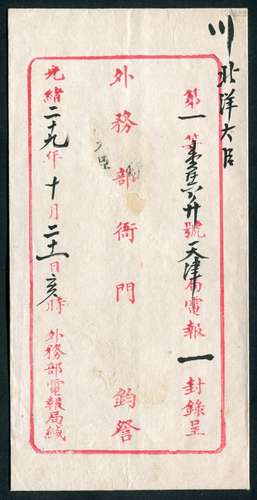 川 北洋大臣
第一等號天津局電報一封錄呈
外務部衙門 鈞詧
光緒二十九年十月二十一日亥時 外務部電報局緘